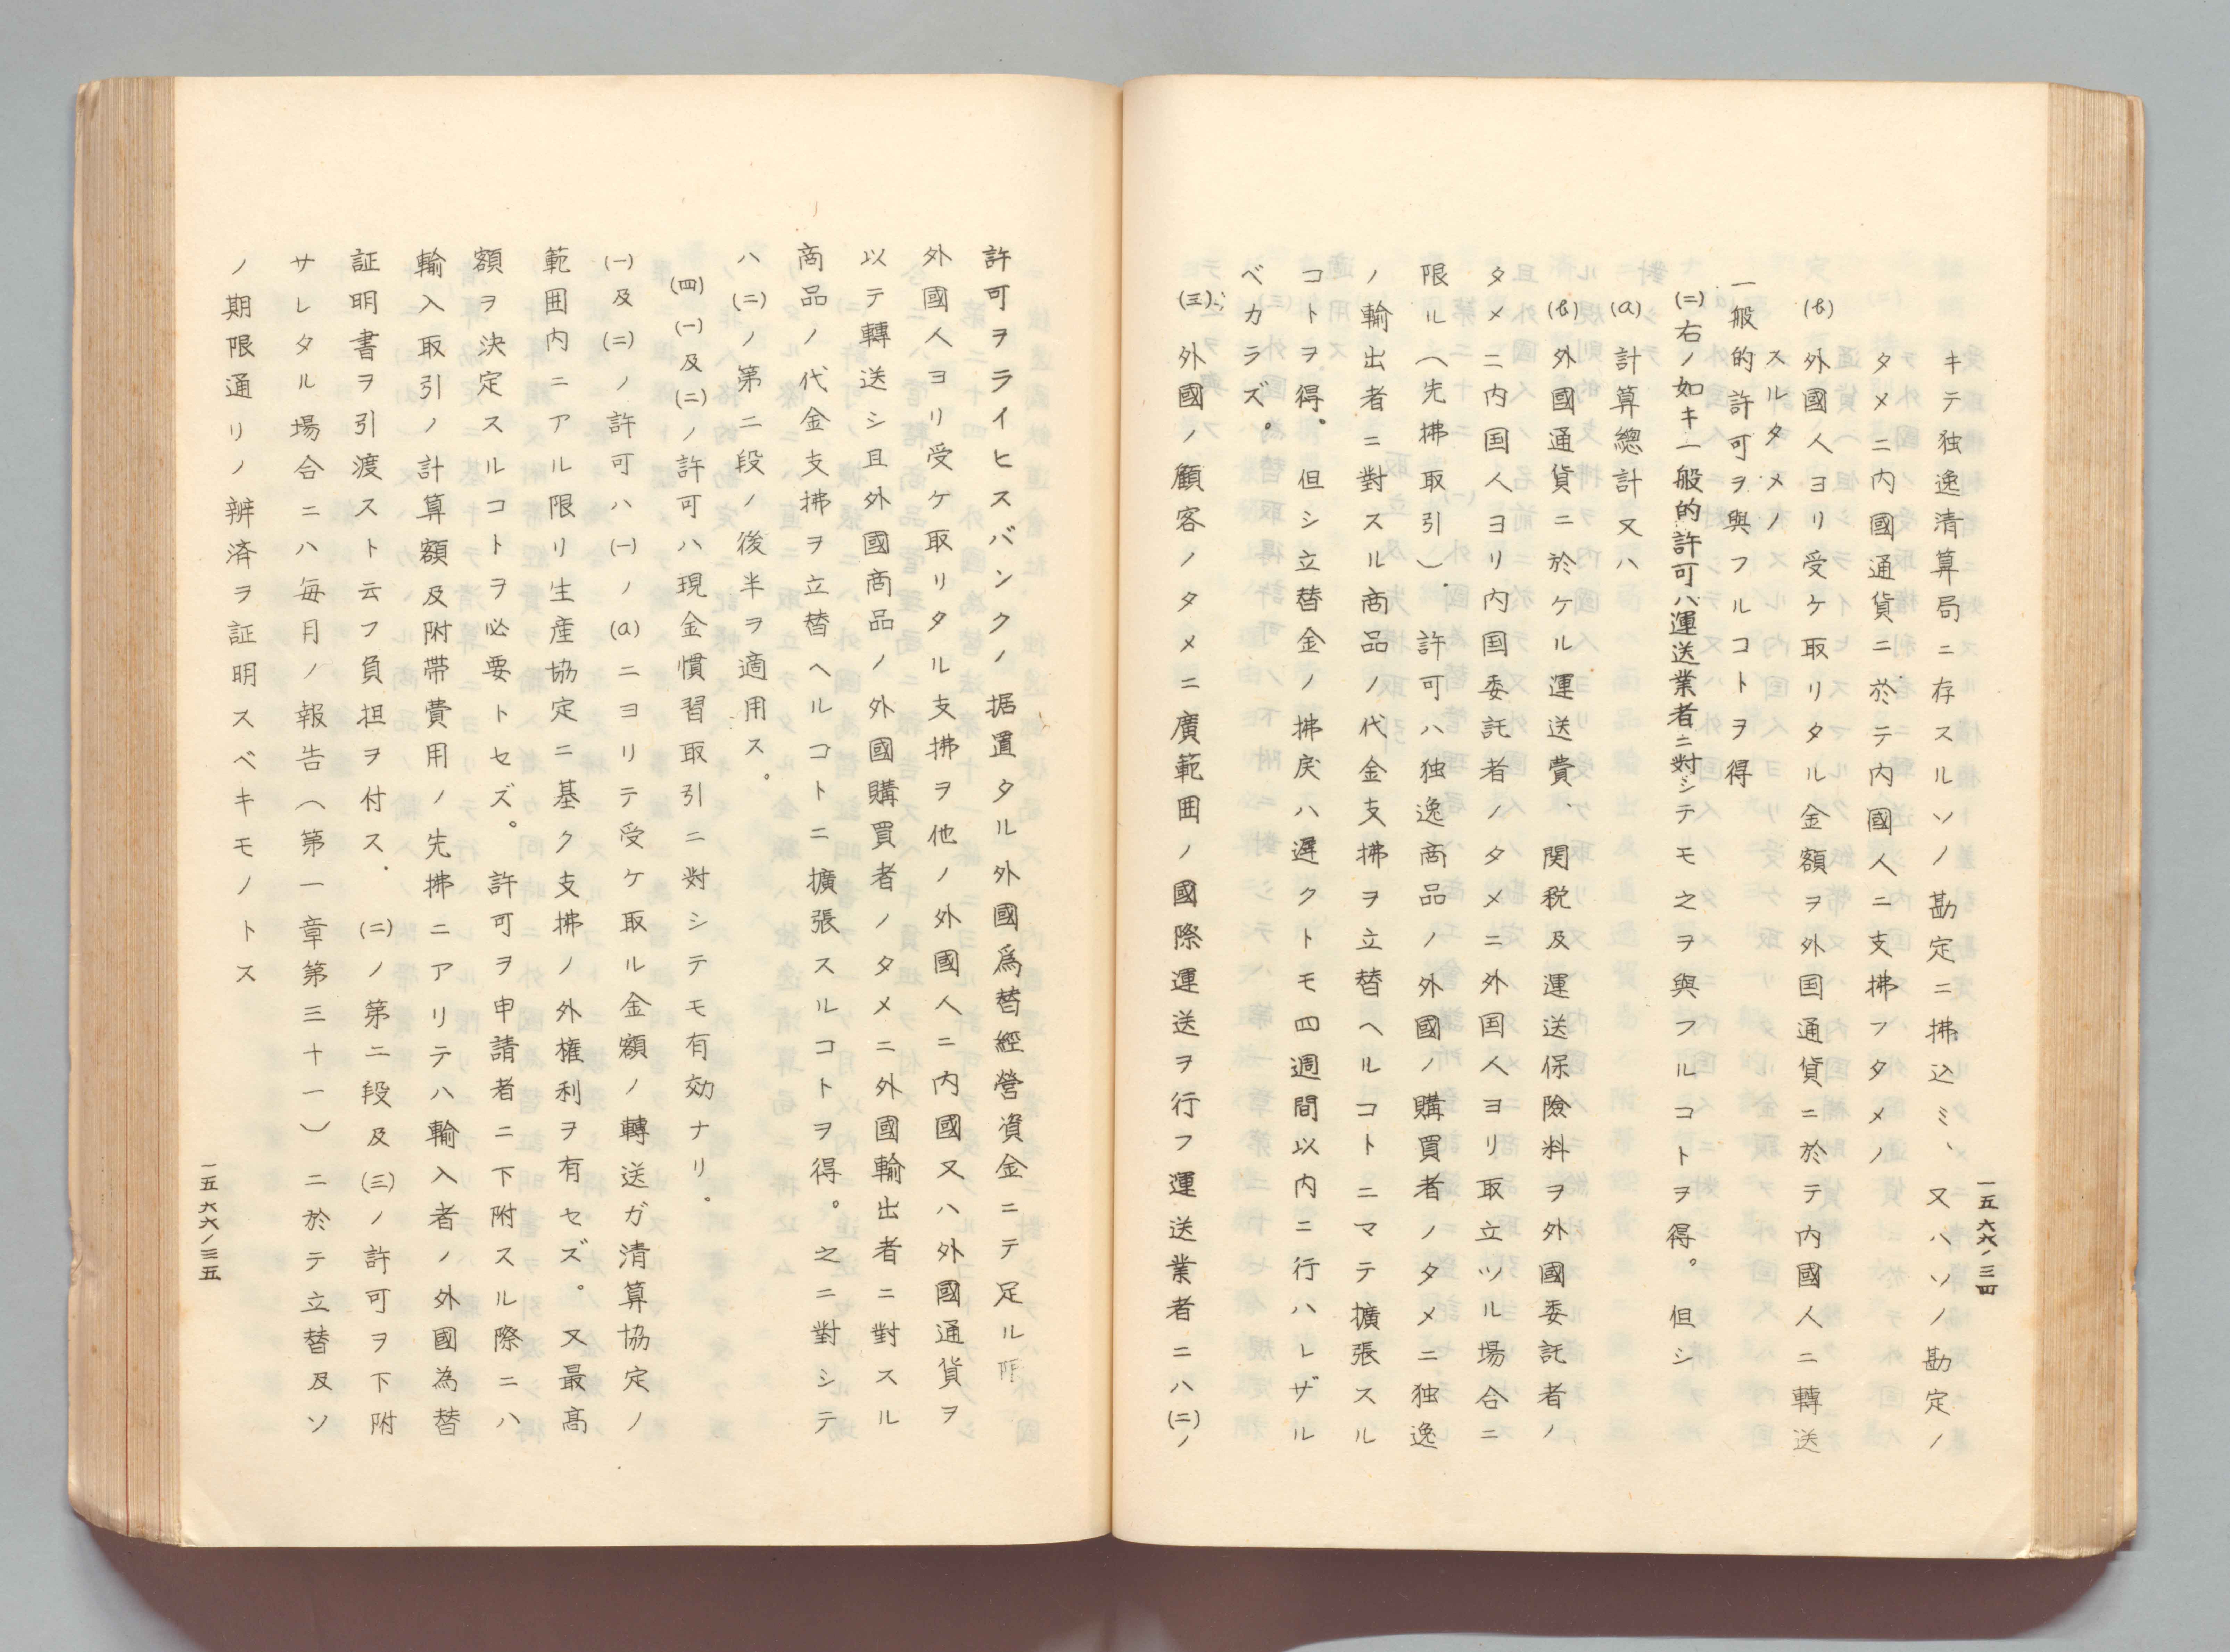 一五六六ノ三四
キテ独逸清算局ニ存スルソノ勘定ニ拂込ミ、又ハソノ勘定ノ
タメニ内國通貨ニ於テ内國人ニ支拂フタメノ
(b) 外國人ヨリ受ケ取リタル金額ヲ外国通貨ニ於テ内國人ニ轉送
スルタメノ
一般的許可ヲ與フルコトヲ得
(二)右ノ如キ一般的許可ハ運送業者ニ対シテモ之ヲ與フルコトヲ得。但シ
(a) 計算總計又ハ
(b) 外國通貨ニ於ケル運送費、関税及運送保險料ヲ外國委託者ノ
タメニ内国人ヨリ内国委託者ノタメニ外国人ヨリ取立ツル場合ニ
限ル(先拂取引)．許可ハ独逸商品ノ外國ノ購買者ノタメニ独逸
ノ輸出者ニ對スル商品ノ代金支拂ヲ立替ヘルコトニマテ擴張スル
コトヲ得。但シ立替金ノ拂戻ハ遲クトモ四週間以内ニ行ハレザル
ベカラズ。
(三) 外國ノ顧客ノタメニ廣範囲ノ國際運送ヲ行フ運送業者ニハ(二)ノ
許可ヲライヒスバンクノ据置タル外國爲替經營資金ニテ足ル限
外國人ヨリ受ケ取リタル支拂ヲ他ノ外國人ニ内國又ハ外國通貨ヲ
以テ轉送シ且外國商品ノ外國購買者ノタメニ外國輸出者ニ對スル
商品ノ代金支拂ヲ立替ヘルコトニ擴張スルコトヲ得。之ニ對シテ
ハ(二)ノ第二段ノ後半ヲ適用ス。
(四) (一)及(二)ノ許可ハ現金慣習取引ニ対シテモ有効ナリ．
(一)及(二)ノ許可ハ(一)ノ(a)ニヨリテ受ケ取ル金額ノ轉送ガ清算協定ノ
範囲内ニアル限リ生産協定ニ基ク支拂ノ外権利ヲ有セズ。又最高
額ヲ決定スルコトヲ必要トセズ。許可ヲ申請者ニ下附スル際ニハ
輸入取引ノ計算額及附帯費用ノ先拂ニアリテハ輸入者ノ外國為替
証明書ヲ引渡スト云フ負担ヲ付ス．(二)ノ第二段及(三)ノ許可ヲ下附
サレタル場合ニハ毎月ノ報告(第一章第三十一)ニ於テ立替及ソ
ノ期限通リノ辨済ヲ証明スベキモノトス
一五六六ノ三五